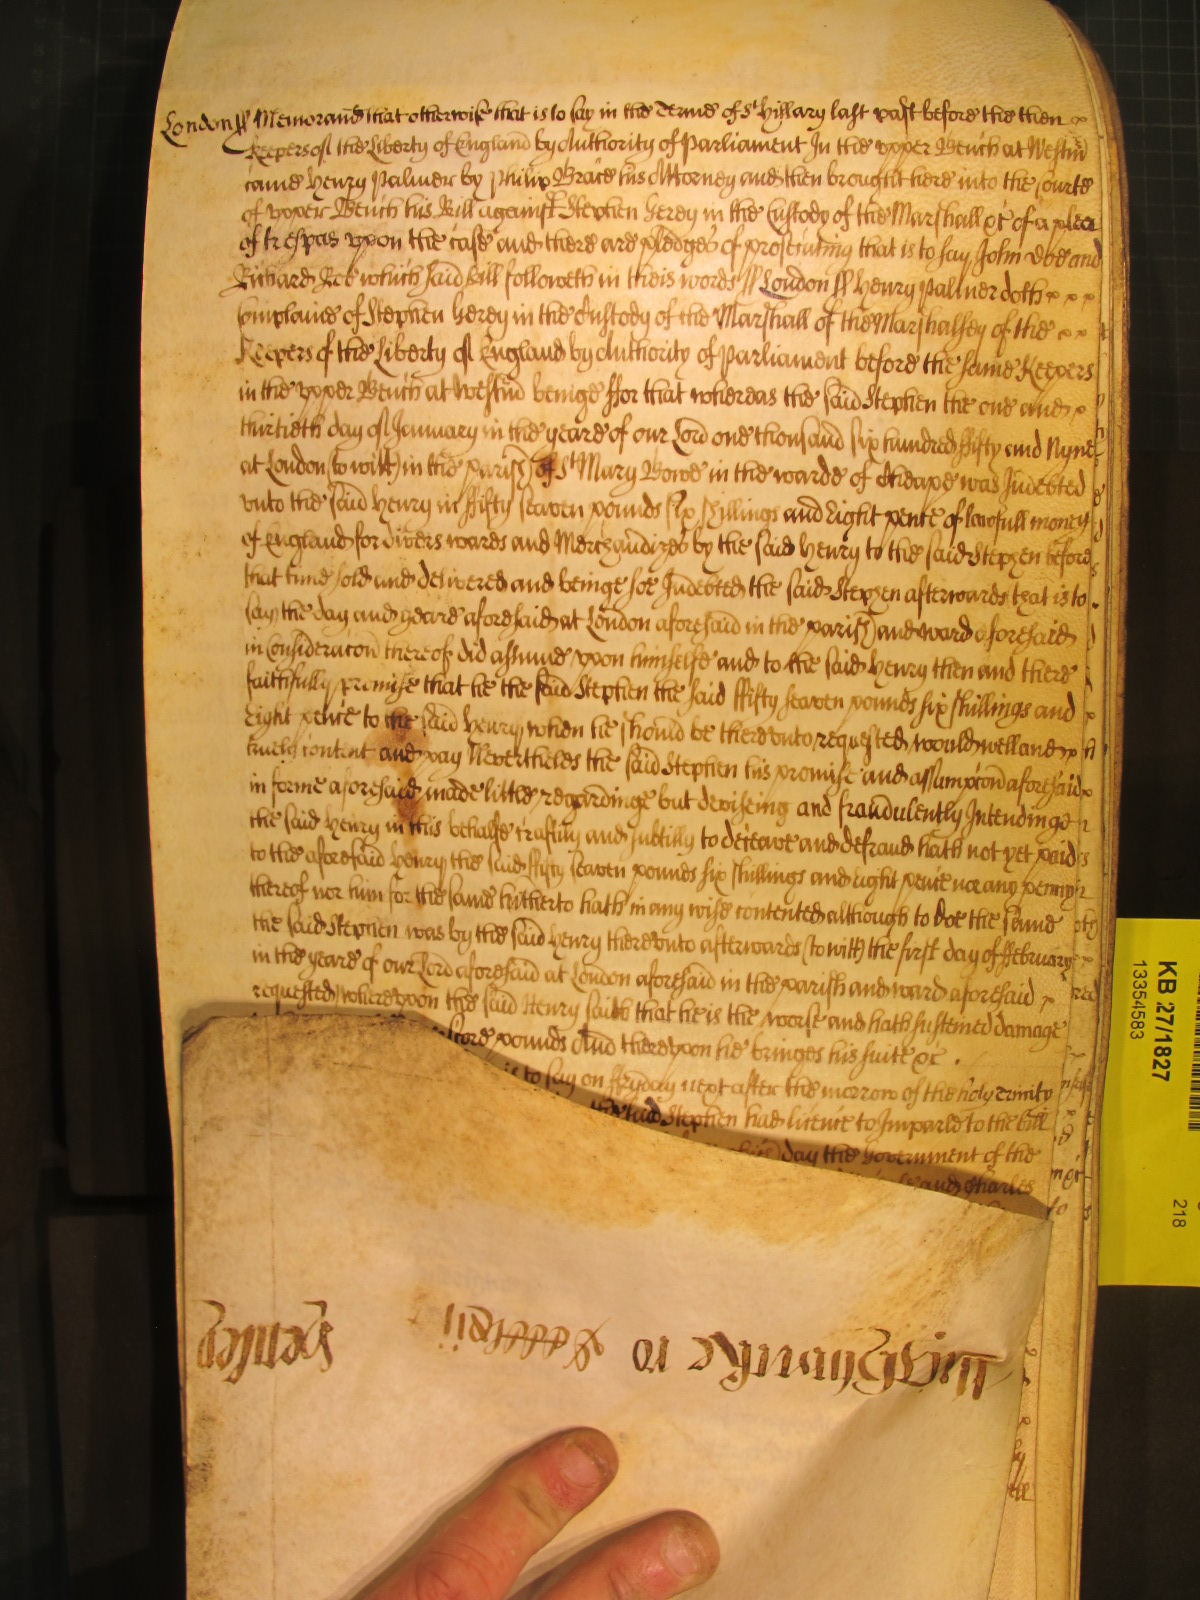 London ss Memorand that otherwise that is to say in the Terme of St Hillary last past before the then
Keepers of the Liberty of England by Authority of Parliament In the upper Bench at Westm
came Henry Palmer by Philip Brace his Attorney and then brought here into the Courte
of upper Bench his Bill against Stephen Herey in the Custody of the Marshall &c of a plea
of trespas upon the case and there are pledges of prosecuting that is to say John Doe and
Richard Roe which said bill followeth in theis words ss London ss Henry Palmer doth
complaine of Stephen Herey in the Custody of the Marshall of the Marshalsey of the
Keepers of the Liberty of England by Authority of Parliament before the same Keepers
in the upper Bench at Westm beinge ffor that whereas the said Stephen the one and
thirtieth day of January in the yeare of our Lord one thousand six hundred ffifty and Nyne
at London (to witt) in the parish of St Mary Bowe in the warde of Cheape was Indebted
unto the said Henry in ffifty seaven pounds six shillings and eight pence of lawfull money
of England for divers wares and Merchandizes by the said Henry to the said Stephen before
that time sold and delivered and beinge soe Indebted the said Stephen afterwards that is to
say the day and yeare aforesaid at London aforesaid in the parish and ward aforesaid
in Consideracon thereof did assume upon himselfe and to the said Henry then and there
faithfully promise that he the said Stephen the said ffifty seaven pounds six shillings and
eight pence to the said Henry when he should be thereunto requested would well and
truely content and pay Neverthelesse the said Stephen his promise and assumpcon aforesaid
in forme aforesaid made little regardinge but deviseing and fraudulently Intendinge
the said Henry in this behalfe craftily and subtilly to deceave and defraud hath not yet paid
to the aforesaid Henry the said ffifty seaven pounds six shillings and eight pence nor any penny
thereof nor him for the same hitherto hath in any wise contented although to doe the same
the said Stephen was by the said Henry thereunto afterwards (to witt) the first day of ffebruary
in the yeare of our Lord aforesaid at London aforesaid in the parish and ward aforesaid
requested whereupon the said Henry saith that he is the worse and hath susteined damage
score pounds And thereupon he bringes his suite &c.
is to say on ffryday next after the morrow of the holy Trinity
the said Stephen had licence to Imparle to the bill
day the Government of the
and Charles
KB 27/1827
13354583
218